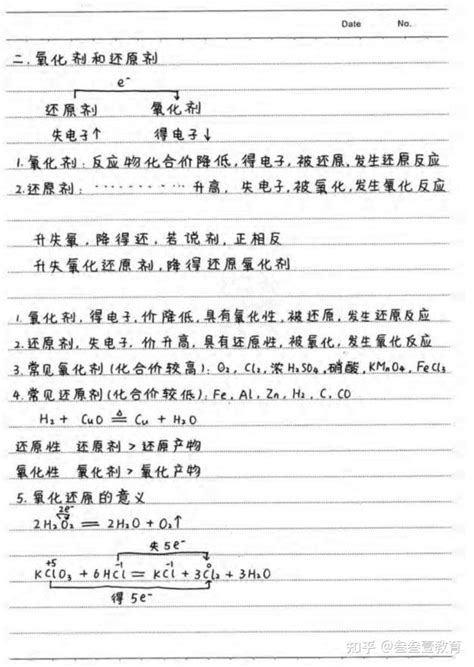 Date No.
二.氧化剂和还原剂
e⁻
还原剂 氧化剂
失电子↑ 得电子↓
1.氧化剂:反应物化合价降低,得电子,被还原,发生还原反应
2.还原剂:··········升高,失电子,被氧化,发生氧化反应
升失氧,降得还,若说剂,正相反
升失氧化还原剂,降得还原氧化剂
1.氧化剂,得电子,价降低,具有氧化性,被还原,发生还原反应
2.还原剂,失电子,价升高,具有还原性,被氧化,发生氧化反应
3.常见氧化剂(化合价较高):O₂,Cl₂,浓H₂SO₄,硝酸,KMnO₄,FeCl₃
4.常见还原剂(化合价较低):Fe,Al,Zn,H₂,C,CO
H₂ + CuO ≜ Cu + H₂O
还原性 还原剂>还原产物
氧化性 氧化剂>氧化产物
5.氧化还原的意义
2e⁻
2H₂O₂ = 2H₂O + O₂↑
失5e⁻
+5 -1 -1 0
KClO₃ + 6HCl = KCl + 3Cl₂ + 3H₂O
得5e⁻
知乎 @叁叁壹教育